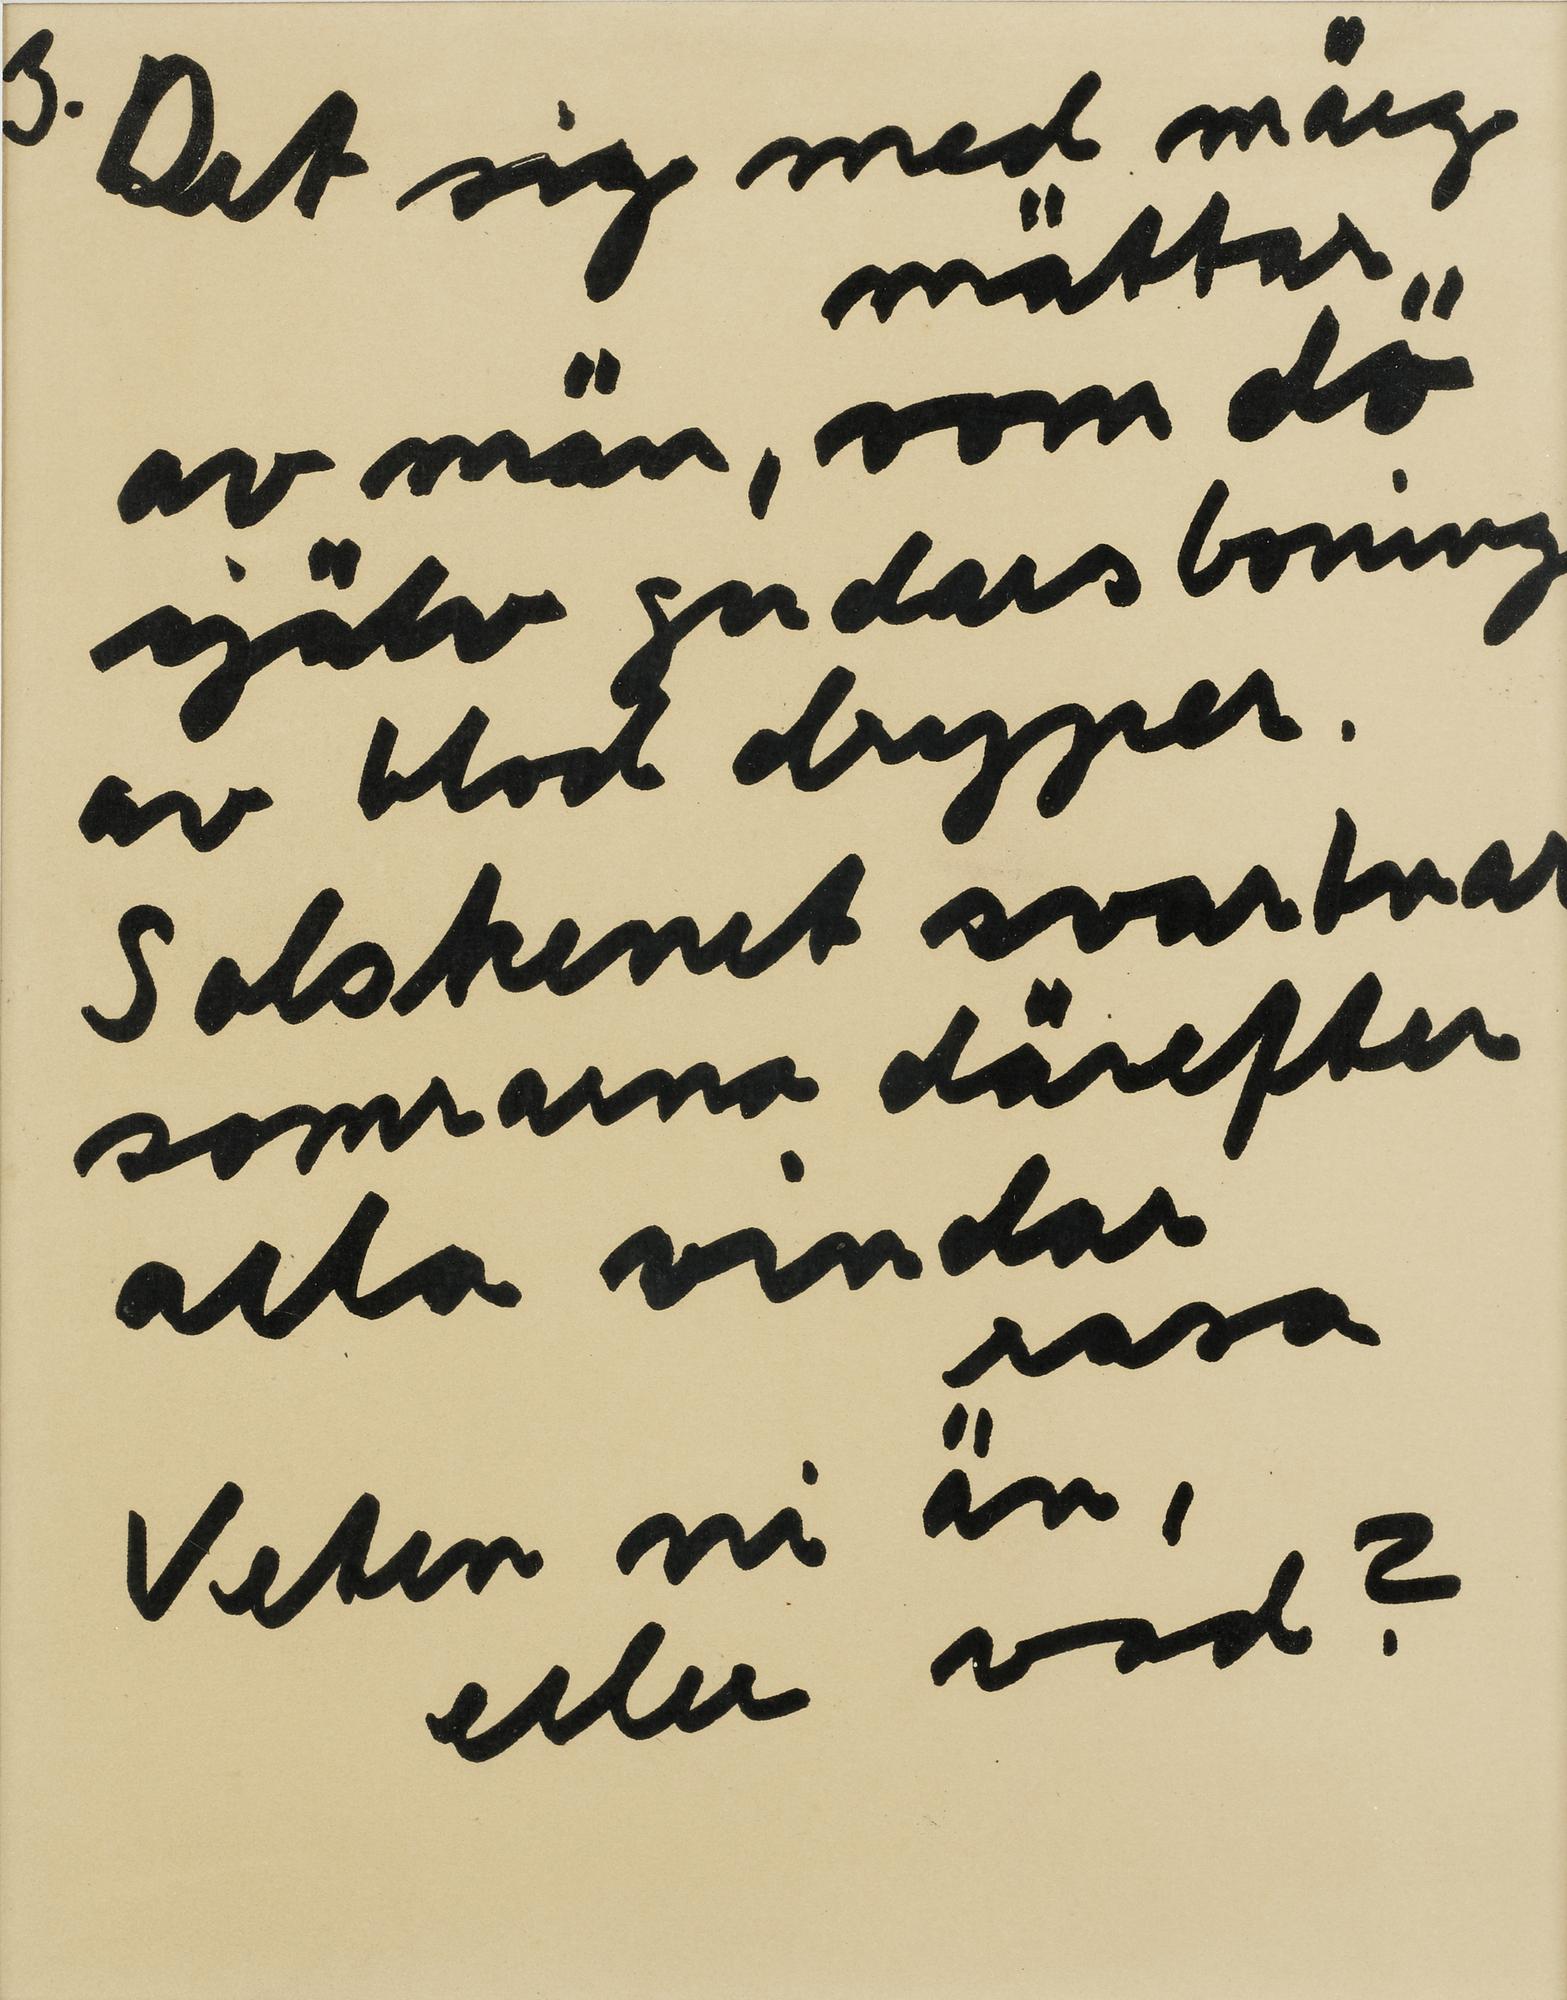 3. Det sig med märg
mättar
av män, som dö
själv gudars boning
av blod drypper.
Solskenet svartnar
somrarna därefter
alla vindar
rasa
Veten ni än,
eller vad?